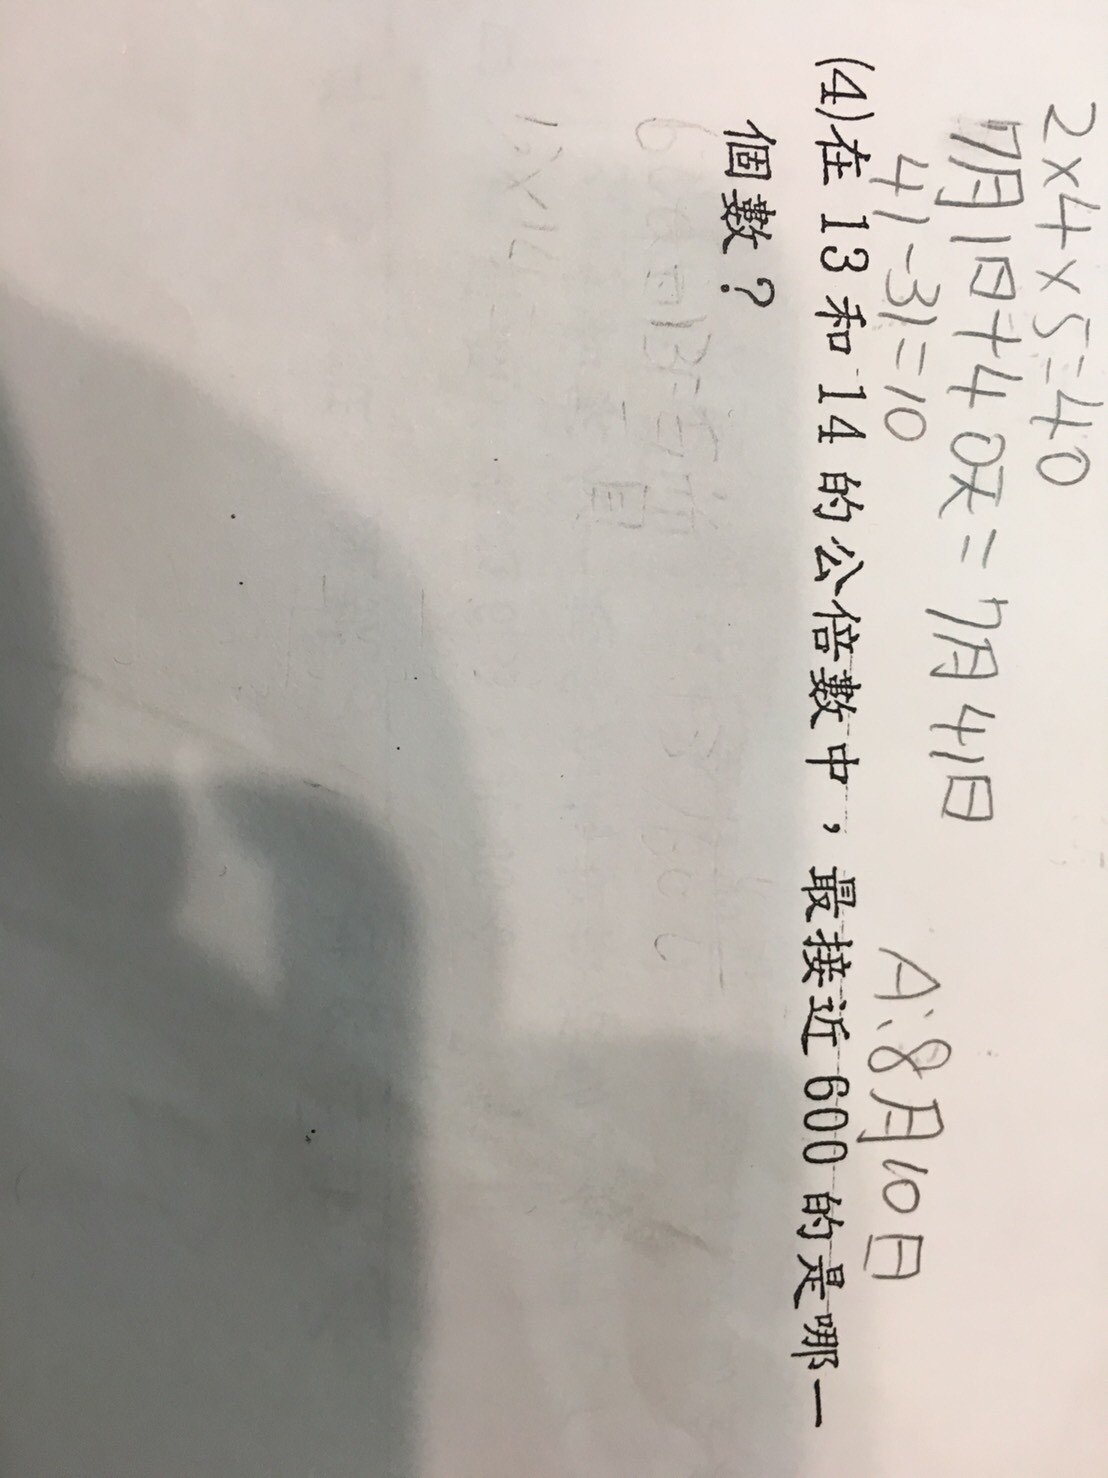 2×4×5=40
7月1日+40天=7月41日
41-31=10
A:8月10日
(4)在 13 和 14 的公倍數中，最接近 600 的是哪一
個數？